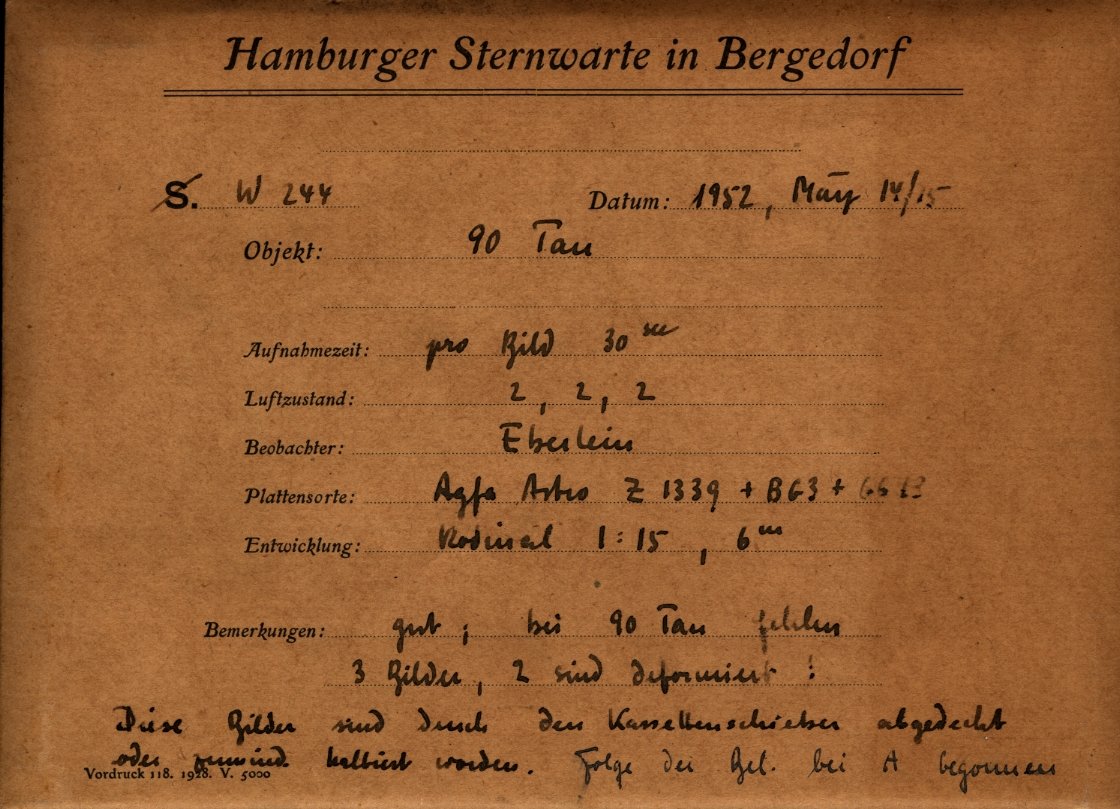 Hamburger Sternwarte in Bergedorf
S. W 244 Datum: 1952, März 14/15
Objekt: 90 Tau
Aufnahmezeit: pro Bild 30 sec
Luftzustand: 2, 2, 2
Beobachter: Eberlein
Plattensorte: Agfa Astro Z 1339 + BG3 + GG 13
Entwicklung: Rodinal 1:15, 6 m
Bemerkungen: gut; bei 90 Tau fehlen
3 Bilder, 2 sind deformiert!
Diese Bilder sind durch den Kassettenschieber abgedeckt
oder worden. Folge der Bel. bei A begonnen
Vordruck 118. 1928. V. 5000